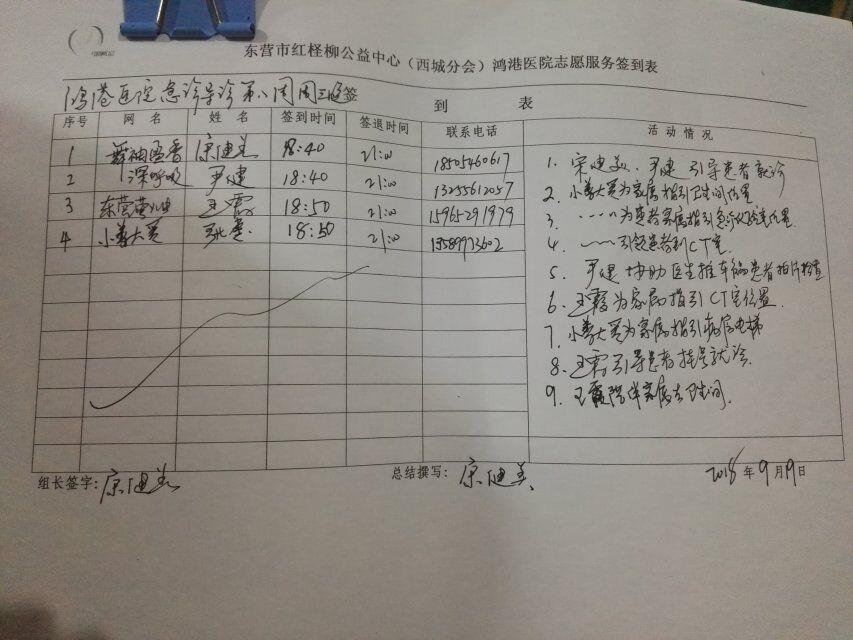 东营市红柽柳公益中心（西城分会）鸿港医院志愿服务签到表
鸿港医院急诊导诊第八周周三晚签 到 表
序号 网 名 姓 名 签到时间 签退时间 联系电话 活 动 情 况
1 舞袖盈香 宋健美 18:40 21:00 18505460617
2 深呼吸 尹健 18:40 21:00 13255612057
3 东营 王霞 18:50 21:00 15965291979
4 小 大 18:50 21:00 13589973602
1. 宋健美、尹健引导患者就诊
2. 小 大 为家属指引卫生间位置
3. ……为患者家属指引急诊 室位置
4. 引领患者到CT室
5. 尹健协助医生推车 患者拍片检查
6. 王霞为家属指引CT室位置
7. 小 大 为家属指引病房电梯
8. 王霞引导患者挂号就诊
9. 王霞陪伴家属去卫生间
组长签字：宋健美 总结撰写：宋健美 2018年9月19日